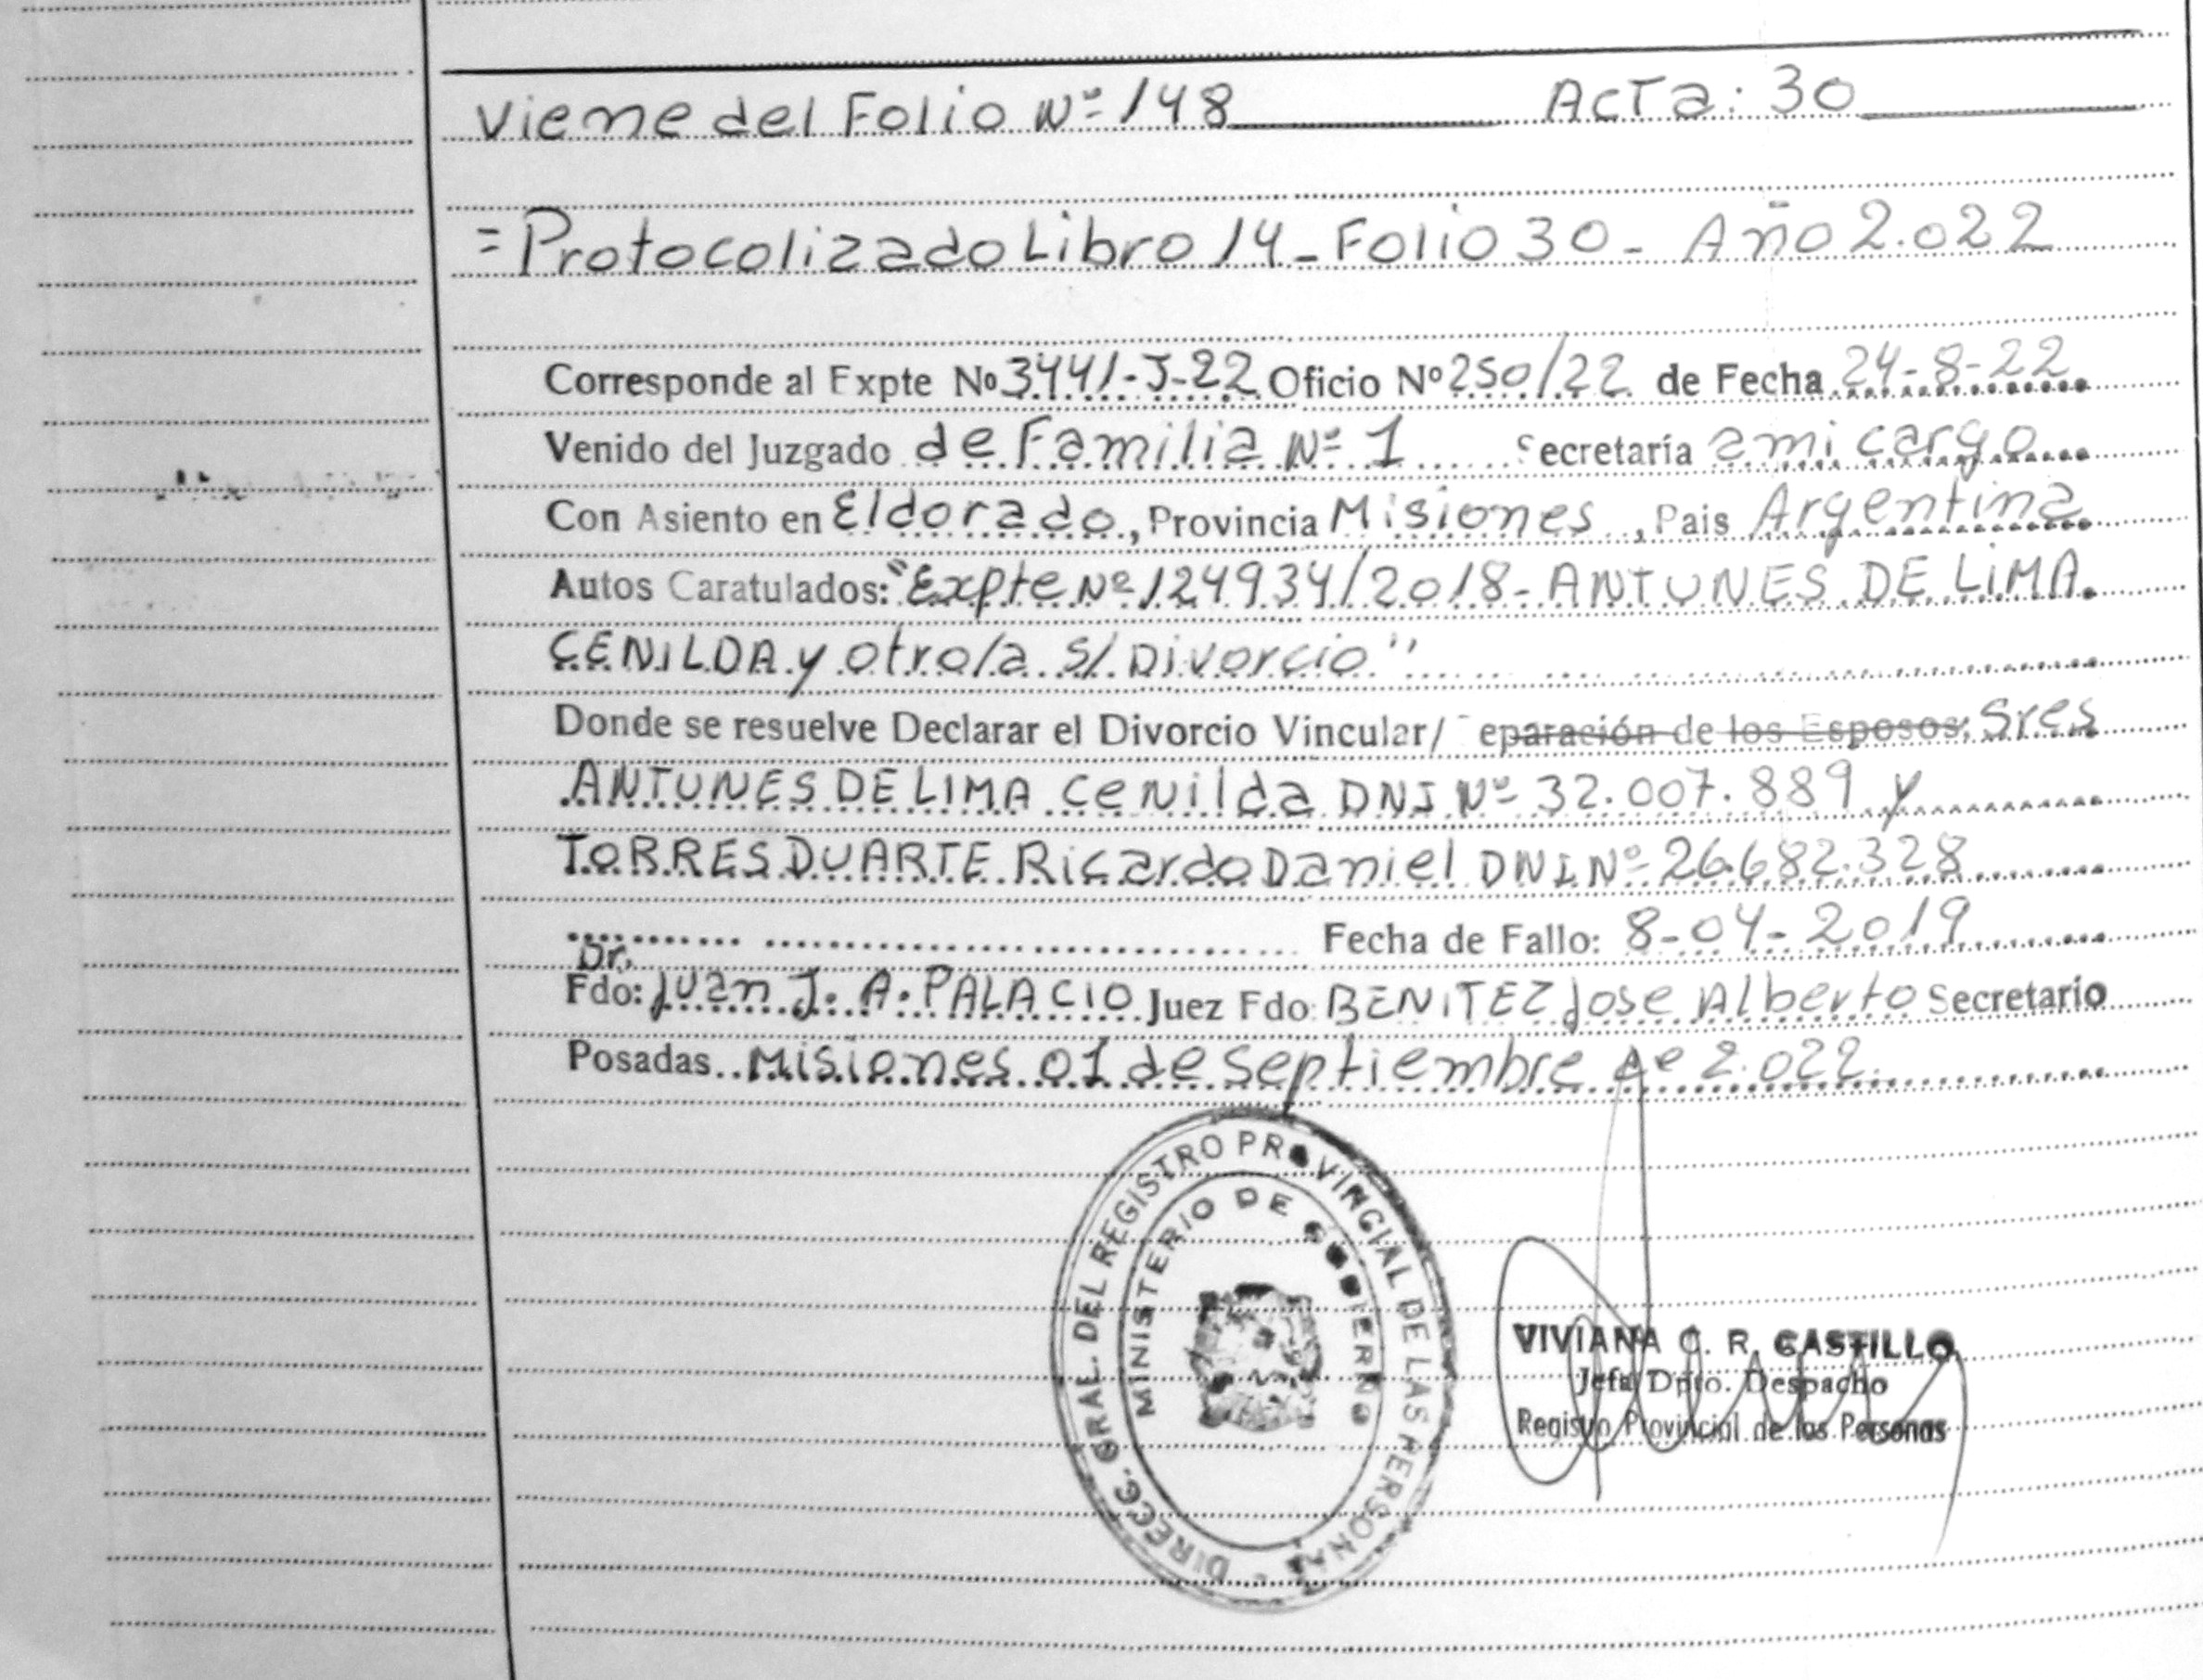 Viene del Folio Nº 148 Acta: 30
= Protocolizado Libro 14 - Folio 30 - Año 2.022
Corresponde al Expte Nº 3441-J-22 Oficio Nº 250/22 de Fecha 24-8-22
Venido del Juzgado de Familia Nº 1 Secretaría a mi cargo
Con Asiento en Eldorado, Provincia Misiones, Pais Argentina
Autos Caratulados: "Expte Nº 124934/2018 - ANTUNES DE LIMA
CENILDA y otro/a S/ Divorcio"
Donde se resuelve Declarar el Divorcio Vincular/ eparación de los Esposos: Sres
ANTUNES DE LIMA Cenilda DNI Nº 32.007.889 y
TORRES DUARTE Ricardo Daniel DNI Nº 26.682.328
Fecha de Fallo: 8-04-2019
Dr.
Fdo: Juan J. A. PALACIO Juez Fdo: BENITEZ Jose Alberto Secretario
Posadas Misiones 01 de Septiembre de 2.022
DIRECC. GRAL. DEL REGISTRO PROVINCIAL DE LAS PERSONAS
MINISTERIO DE GOBIERNO
VIVIANA C. R. CASTILLO
Jefa Dpto. Despacho
Registro Provincial de las Personas